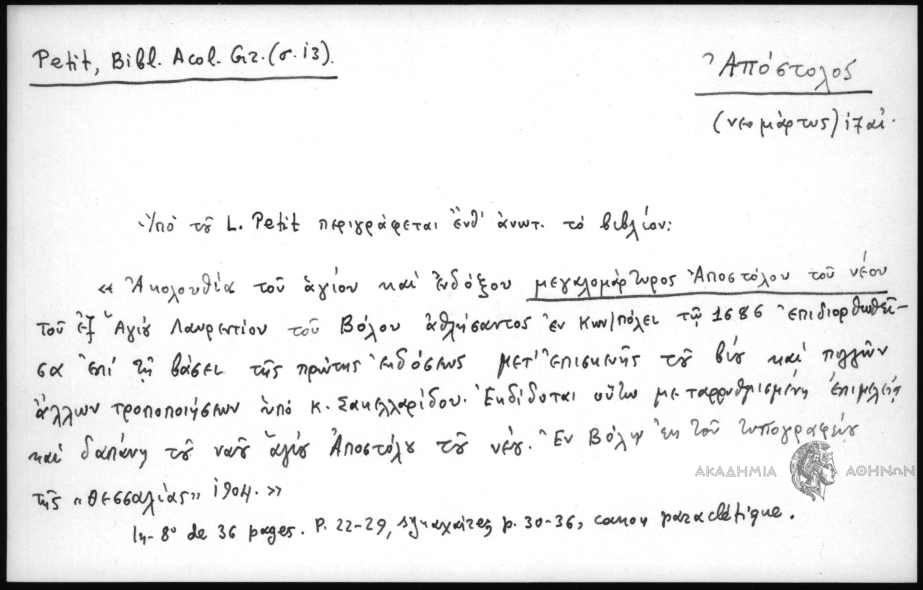 Petit, Bibl. Acol. Gr. (σ. 13).
Ἀπόστολος
(νεομάρτυς) 17 αἰ.
Ὑπὸ τοῦ L. Petit περιγράφεται ἔνθ' ἀνωτ. τὸ βιβλίον:
« Ἀκολουθία τοῦ ἁγίου καὶ ἐνδόξου μεγαλομάρτυρος Ἀποστόλου τοῦ νέου
τοῦ ἐξ Ἁγίου Λαυρεντίου τοῦ Βόλου ἀθλήσαντος ἐν Κων/πόλει τῷ 1686 ἐπιδιορθωθεῖ-
σα ἐπὶ τῇ βάσει τῆς πρώτης ἐκδόσεως μετ' ἐπισκευῆς τοῦ βίου καὶ πολλῶν
ἄλλων τροποποιήσεων ὑπὸ κ. Σακελλαρίδου. Ἐκδίδοται οὕτω μεταρρυθμισμένη ἐπιμελείᾳ
καὶ δαπάνῃ τοῦ ναοῦ ἁγίου Ἀποστόλου τοῦ νέου. Ἐν Βόλῳ ἐκ τοῦ τυπογραφείου
τῆς «Θεσσαλίας» 1904. »
In-8º de 36 pages. P. 22-29, p. 30-36, canon paraclétique.
ΑΚΑΔΗΜΙΑ ΑΘΗΝΩΝ